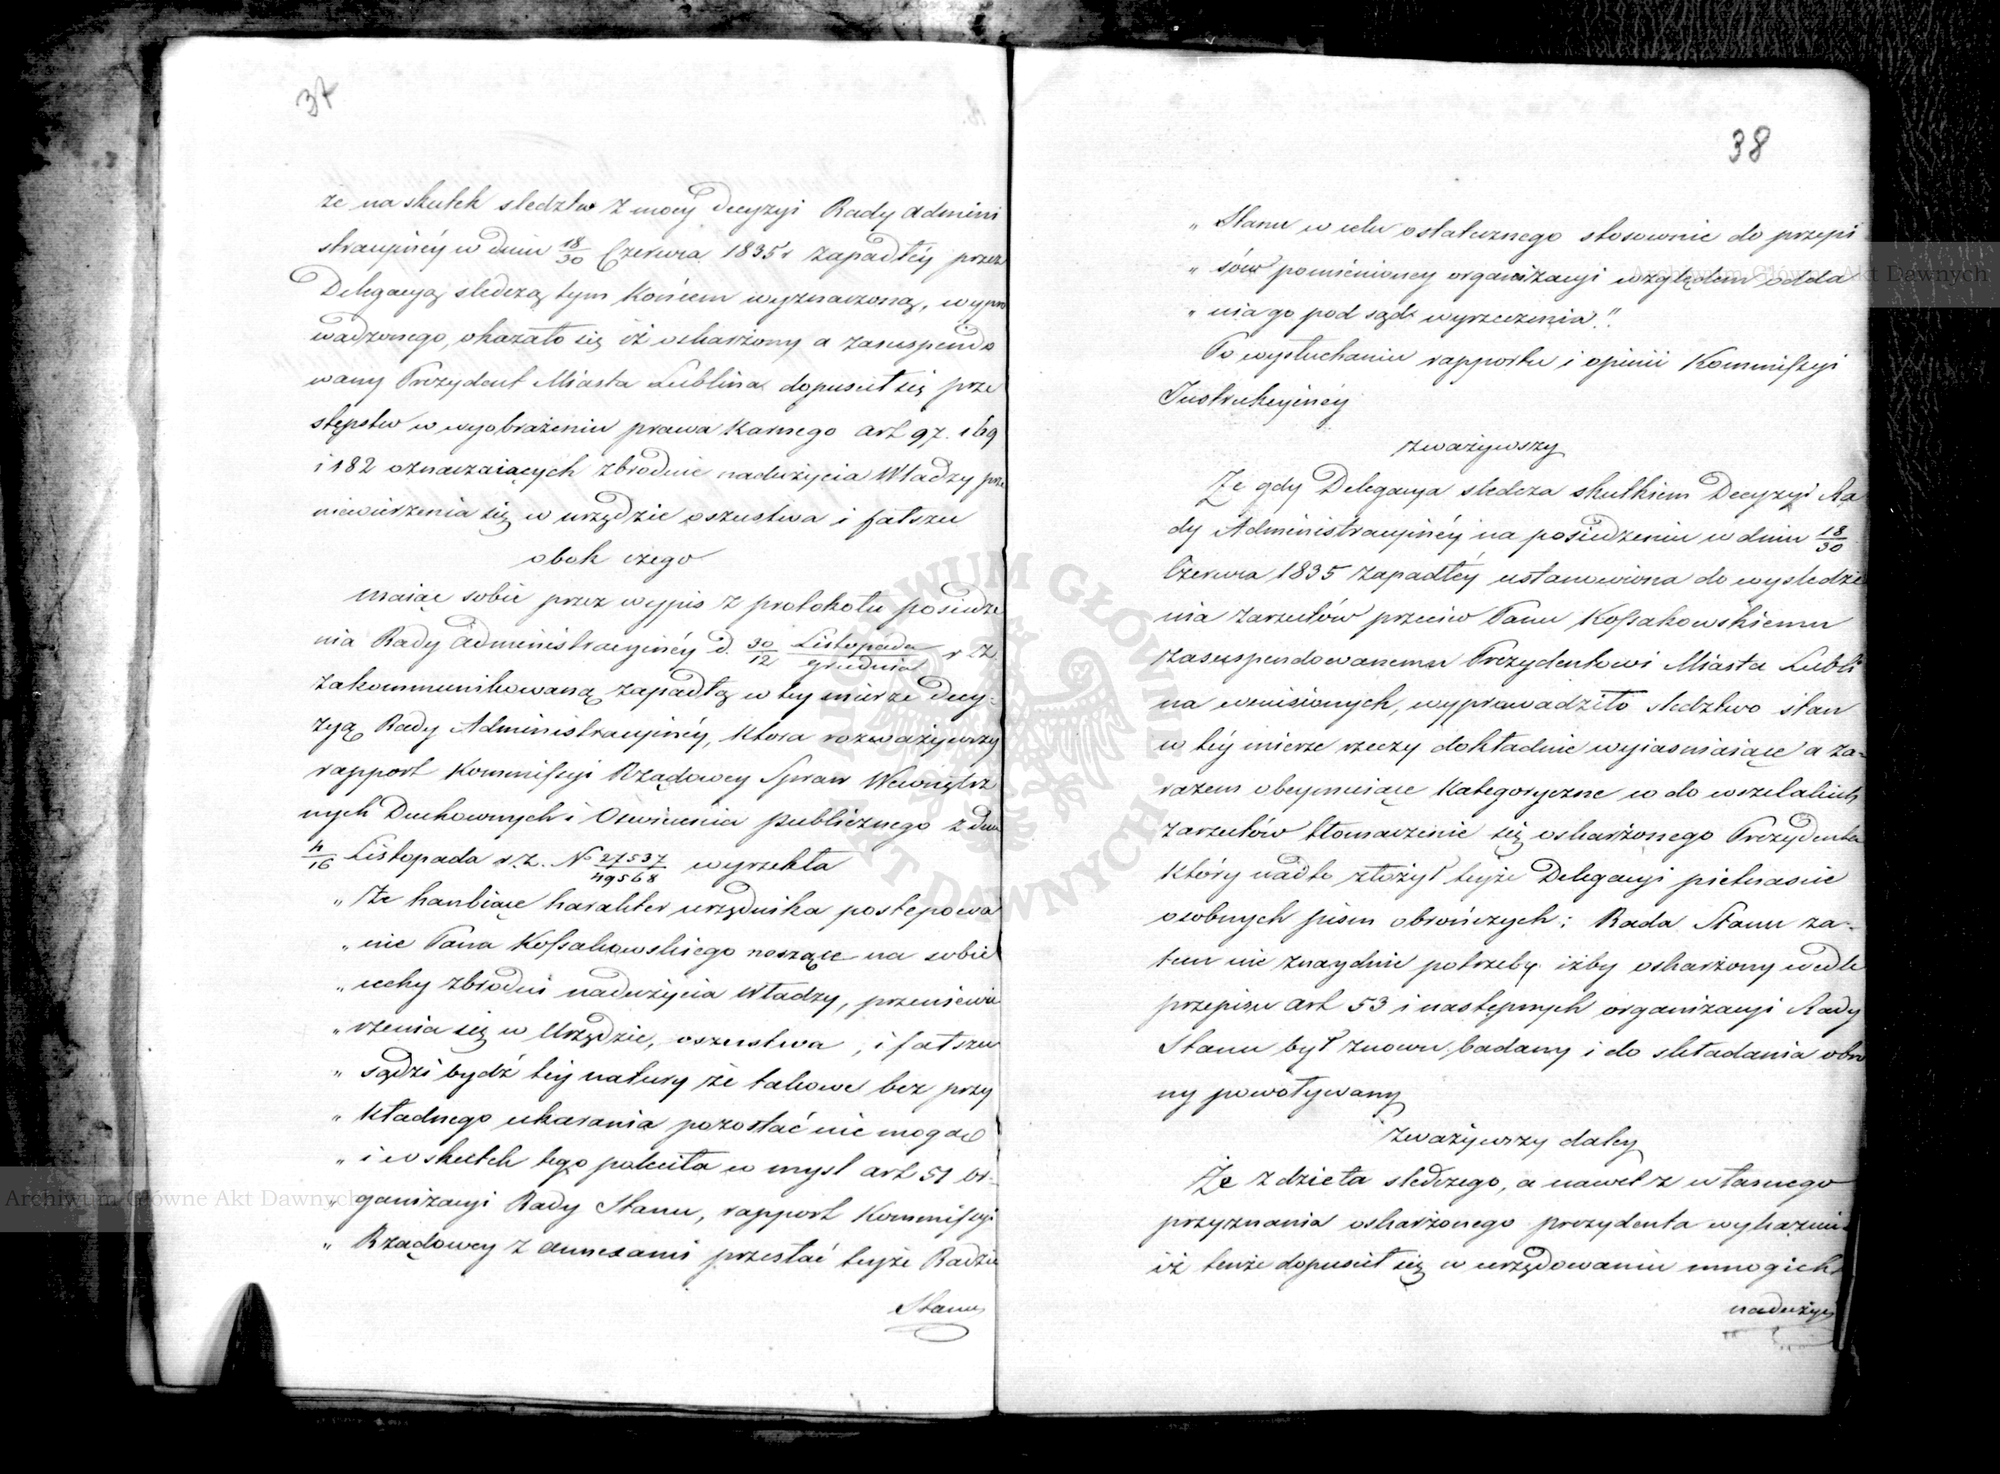 37
że na skutek sledztw z mocy Decyzyi Rady Admini
stracyinéy w dniu 18/30 Czerwca 1835 r zapadłéy przez
Delegacyą sledczą tym końcem wyznaczoną, wypro
wadzonego, okazało się iż oskarżony a zasuspendo
wany Prezydent Miasta Lublina dopuścił się prze
stępstw w wyobrażeniu prawa karnego art 97. 169
i 182 oznaczaiących zbrodnie nadużycia Władzy prze
niewierzenia się w urzędzie oszustwa i fałszu
obok czego
maiąc sobie przez wypis z protokołu posiedze
nia Rady Administracyinéy d. 30/12 Listopada/grudnia r. z.
zakommunikowaną zapadłą w tey mierze decy-
zyą Rady Administracyinéy, która rozważywszy
rapport Kommissyi Rządowey Spraw Wewnętrz
nych Duchownych i Oswiecenia publicznego z dnia
4/16 Listopada r. z. No 27537/49568 wyrzekła
„ Że hanbiące charakter urzędnika postępowa
„ nie Pana Kossakowskiego noszące na sobie
„ cechy zbrodni nadużycia Władzy, przeniewie
„ rzenia się w Urzędzie, oszustwa, i fałszu
„ sądzi bydź téy natury że takowe bez przy
„ kładnego ukarania pozostać nie mogą
„ i w skutek tego poleciła w mysl art 51 or-
„ ganizacyi Rady Stanu, rapport Kommissyi
„ Rządowey z annexami przesłać teyże Radzie
Stanu
38
„ Stanu w celu ostatecznego stosownie do przepi
„ sów pomienioney organizacyi względem odda
„ nia go pod sąd wyrzeczenia."
Po wysłuchaniu rapportu i opinii Kommissyi
Instrukcyinéy
zważywszy
Że gdy Delegacya sledcza skutkiem Decyzyi Ra
dy Administracyinéy na posiedzeniu w dniu 18/30
Czerwca 1835 zapadłéy ustanowiona do wysledze
nia zarzutów przeciw Panu Kossakowskiemu
zasuspendowanemu Prezydentowi Miasta Lubli
na wniesionych, wyprowadziło sledztwo stan
w téy mierze rzeczy dokładnie wyiasniaiące a za-
razem obeymuiące kategoryczne co do wszelakich
zarzutów tłomaczenie się oskarżonego Prezydenta
który nadto złożył teyże Delegacyi pietnascie
osobnych pism obrończych; Rada Stanu za-
tem nie znayduie potrzeby iżby oskarżony wedle
przepisu art 53 i następnych organizacyi Rady
Stanu był znowu badany i do składania obro
ny powoływany
zważywszy daley
Że z dzieła sledczego, a nawet z własnego
przyznania oskarżonego prezydenta wykazuie
iż tenże dopuścił się w urzędowaniu mnogich
nadużyć
Archiwum Główne Akt Dawnych
Archiwum Główne Akt Dawnych
ARCHIWUM GŁÓWNE AKT DAWNYCH